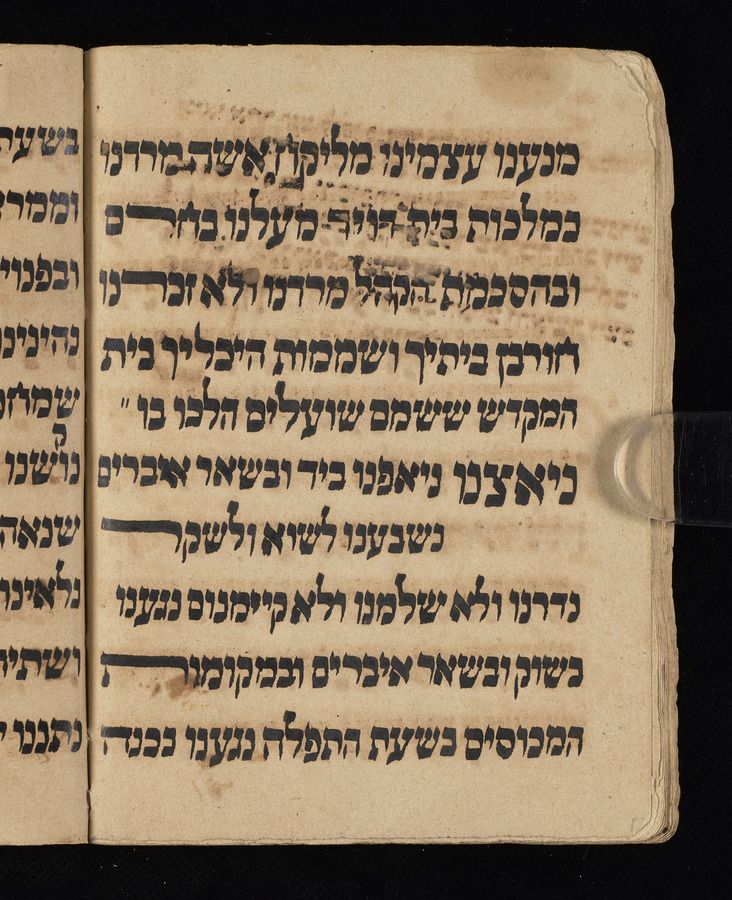 מנענו עצמינו מליקח אשה מרדנו
במלכות בית דויד מעלנו בחרם
ובהסכמת הקהל מרדנו ולא זכרנו
חורבן ביתיך ושממות היכליך בית
המקדש ששמם שועלים הלכו בו "
ניאצנו ניאפנו ביד ובשאר איברים
נשבענו לשוא ולשקר
נדרנו ולא שלמנו ולא קיימנום נגענו
בשוק ובשאר איברים ובמקומות
המכוסים בשעת התפלה נגענו בכנה
בשעת
וממר
ובפנוי
נהינינו
נושנו
שנאה
נלאינו
ושתי
נתננו